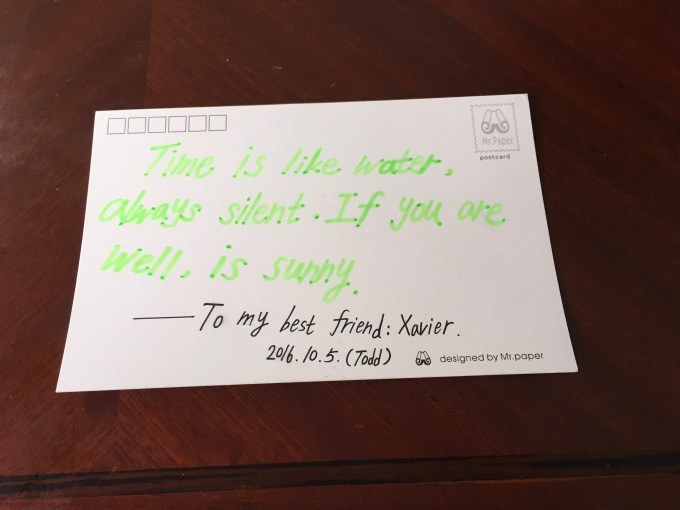 Mr.Paper
postcard
Time is like water,
always silent. If you are
well, is sunny.
To my best friend: Xavier.
2016.10.5. (Todd)
designed by Mr.paper